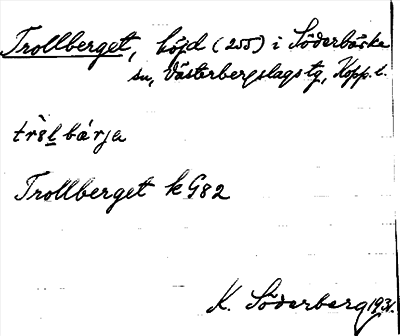 Trollberget, höjd (255) i Söderbärke
sn, Västerbergslags tg, Kopp. l.
trɵ̀lbárja
Trollberget k G82
K. Söderberg 1931.